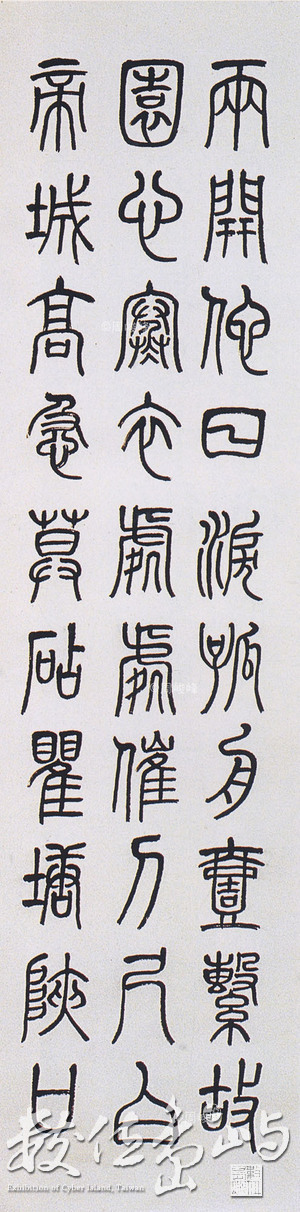 兩開他日淚孤舟壹繫故
園心寒衣處處催刀尺白
帝城高急暮砧瞿塘陝口
數位島嶼
Exhibition of Cyber Island, Taiwan